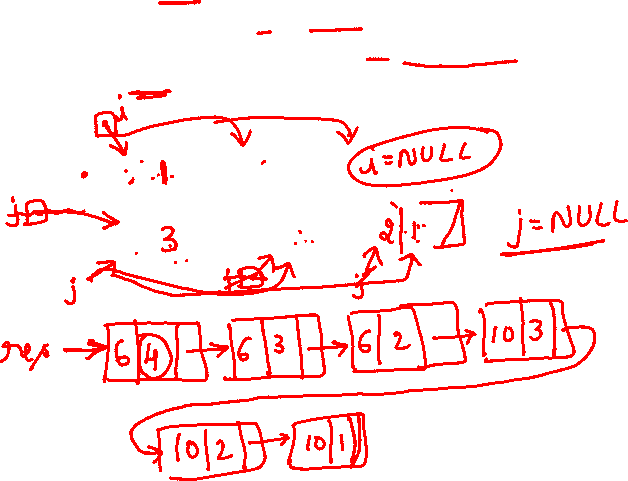 i
1
i=NULL
j
3
2 1
j=NULL
j
j
res 6 4 6 3 6 2 10 3
10 2 10 1